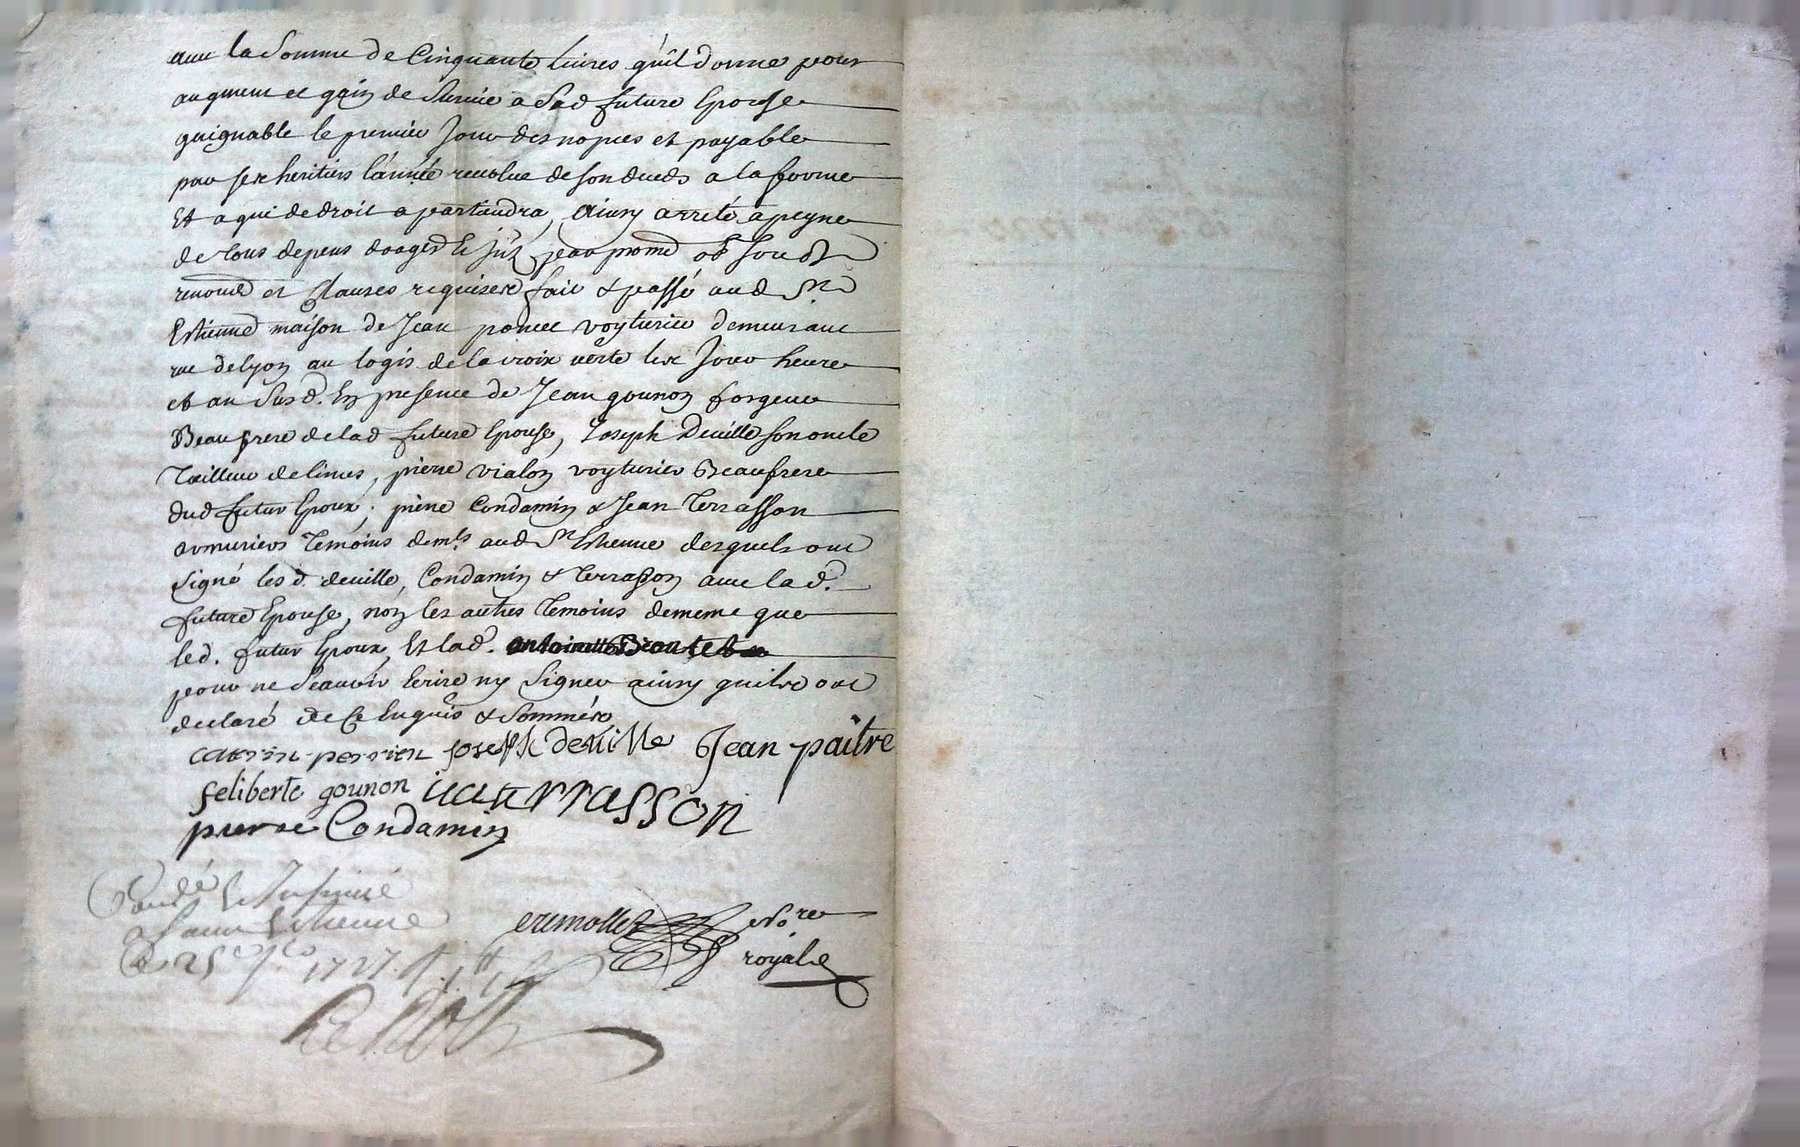 avec la somme de Cinquante livres qu'il donne pour
augment et gain de survie a sad future Epouse
gaignable le premier Jour des nopces et payable
par ses heritiers l'année revolue de son deceds a la forme
Et a qui de droit apartiendra, Ainsy arreté a peyne
de tous depens domages et
renond et Clauses requises fait & passé aud St
Estienne maison de Jean poncet voyturier demeurant
rue de lyon au logis de la croix verte les Jour heure
et an susd. En presence de Jean gounon forgeur
Beaufrere de lad future Epouse, Joseph Deville son oncle
Tailleur de limes, pierre vialon voyturier Beaufrere
dud futur Epoux, pierre Condamin & Jean Terrasson
armuriers Temoins dem.ts aud St Estienne desquels ont
signé lesd. deville, Condamin & terrasson avec lad.
future Epouse, nón les autres Temoins de meme que
led. futur Epoux Et lad.
pour ne sçavoir Ecrire ny signer ainsy qu'ils ont
declaré de Ce Enquis & sommés
joseph deville Jean paitre
feliberte gounon terrasson
pierre Condamin
Controllé & Insinué
a Saint Estienne
Le 25e 1727
No.re
royal